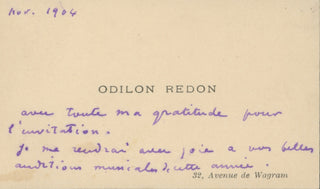 nov. 1904
ODILON REDON
avec toute ma gratitude pour
l'invitation.
Je me rendrai avec joie a vos belles
auditions musicales de cette année.
32, Avenue de Wagram